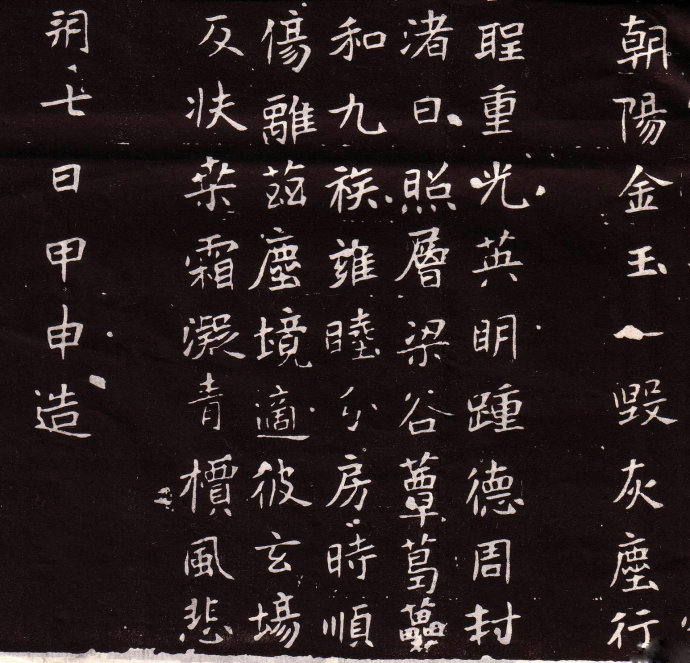 朝陽金玉一毀灰塵行
聖重光英明踵德周封
渚日照層梁谷蕈葛虆
和九族雍睦分房時順
傷離茲塵境適彼玄塲
反袂桒霜凝青檟風悲
朔七日甲申造